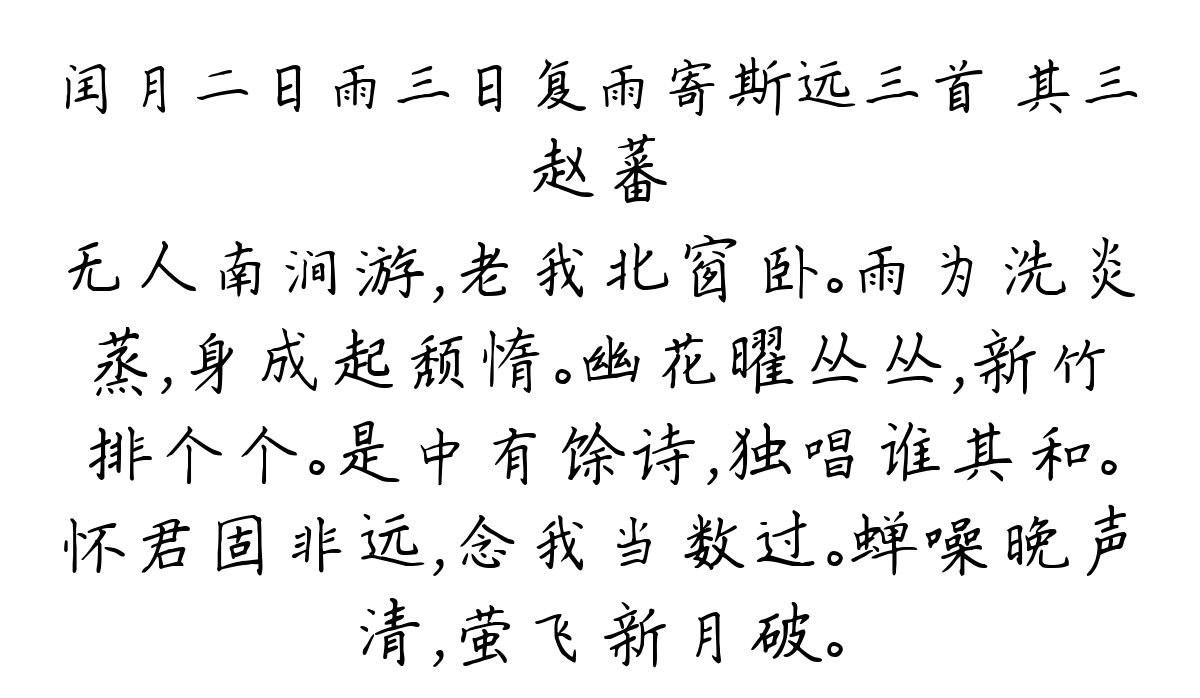 闰月二日雨三日复雨寄斯远三首 其三
赵蕃
无人南涧游,老我北窗卧。雨为洗炎
蒸,身成起颓惰。幽花曜丛丛,新竹
排个个。是中有馀诗,独唱谁其和。
怀君固非远,念我当数过。蝉噪晚声
清,萤飞新月破。